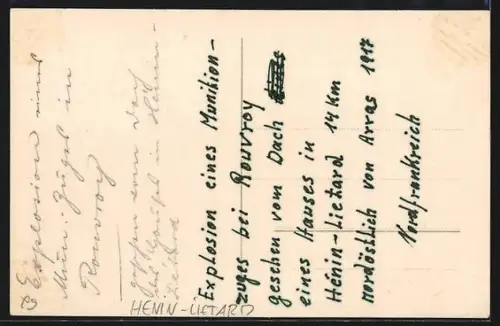 Explosion eines
Mun. Zuges in
Rouvroy
vom Dach
in Hénin-
Liétard
Explosion eines Munition-
zuges bei Rouvroy
gesehen vom Dach
eines Hauses in
Hénin-Lietard 14 km
nordöstlich von Arras 1917
Nordfrankreich
HENIN-LIETARD